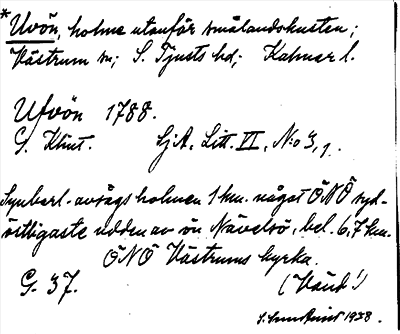 *Uvön, holme utanför smålandskusten;
Västrum sn; S. Tjusts hd; Kalmar l.
Ufvön 1788.
G. Klint. SjA, Litt. VI, N:o 3,1.
Synbarl. avsågs holmen 1 km. något ÖNÖ syd-
östligaste udden av ön Nävelsö, bel. 6,7 km.
ÖNÖ Västrums kyrka.
G. 37. (Vänd!)
S. Sundqvist 1938.